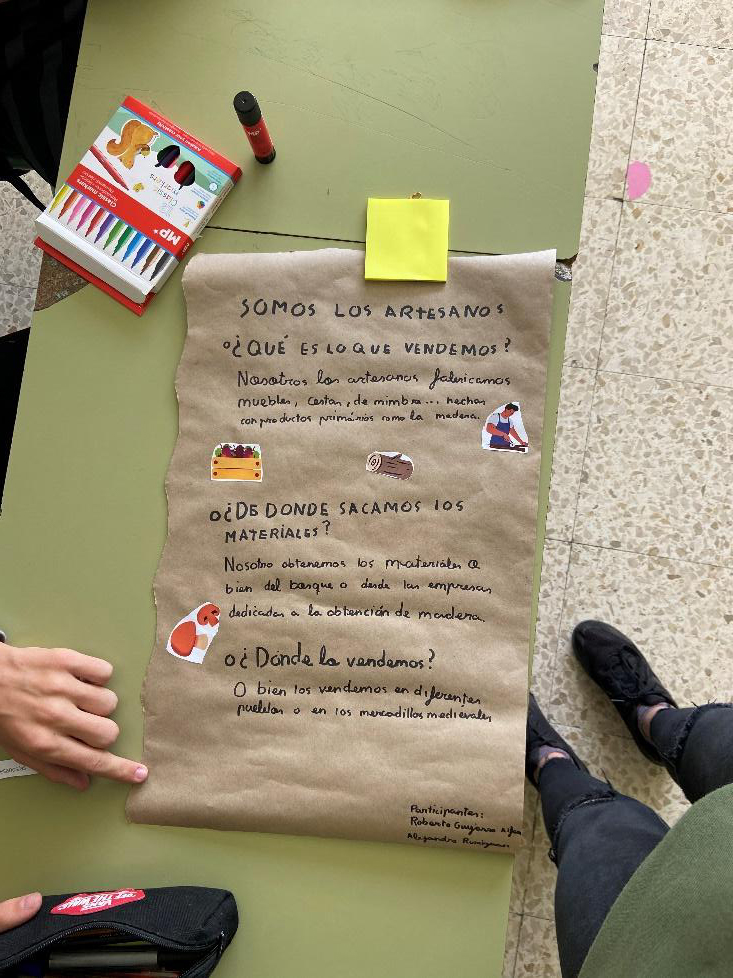 SOMOS LOS ARTESANOS
¿QUÉ ES LO QUE VENDEMOS?
Nosotros los artesanos fabricamos
muebles, cestas, de mimbre... hechas
con productos primários como la madera.
¿DE DONDE SACAMOS LOS
MATERIALES?
Nosotro obtenemos los materiales o
bien del bosque o desde las empresas
dedicadas a la obtención de madera.
¿Dónde lo vendemos?
O bien los vendemos en diferentes
pueblos o en los mercadillos medievales
Participantes:
Roberto
Alejandro
Classic markers
MP
Classic
markers